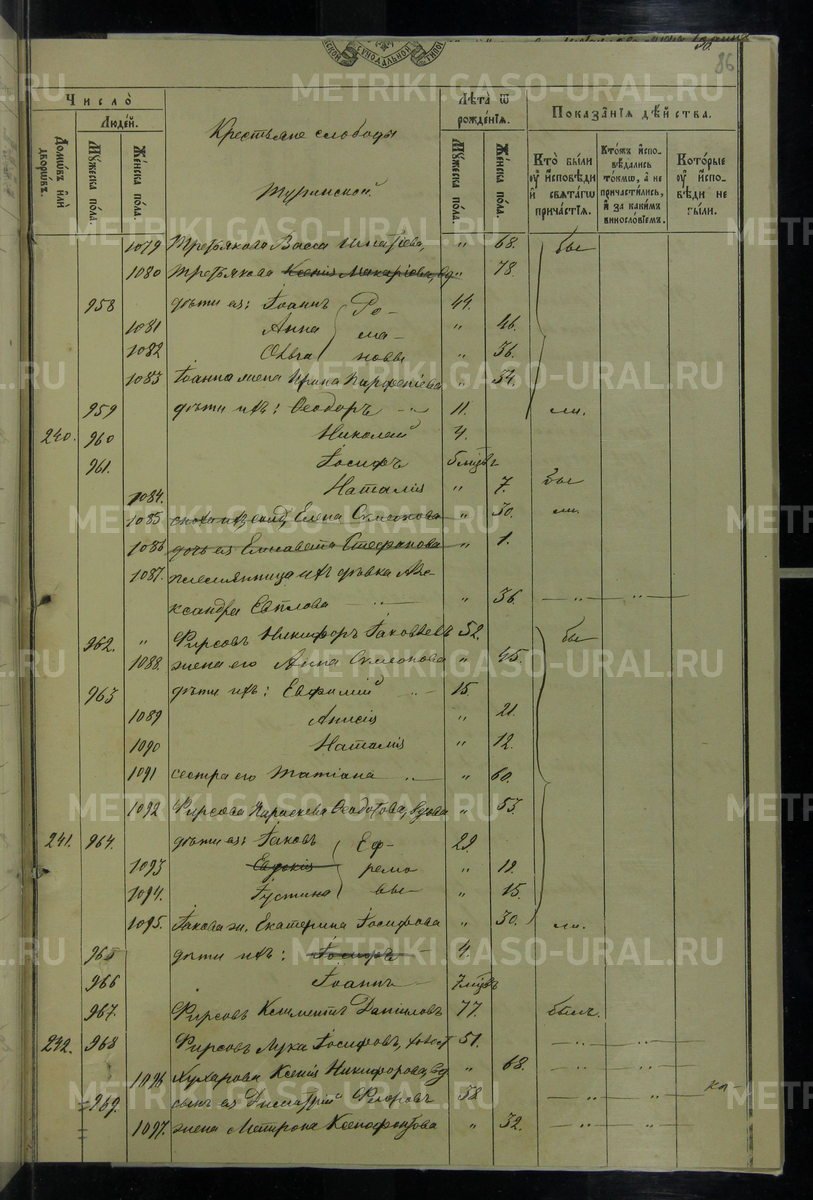 86
Число̀
Людей.
Домѡвъ и҆лѝ дворѡвъ.
Мꙋ́жеска по́ла.
Же́нска по́ла.
Крестьяне слободы
Туринской
Лѣ̑та ѿ рожде́нїѧ.
Мꙋ́жеска по́ла.
Же́нска по́ла.
Показа̑нїѧ дѣ́йства.
Кто̀ бы́ли ᲂу҆ и҆сповѣди и҆ свѧта́гѡ прича́стїѧ.
Кто́жъ и҆спо-вѣдались то́кмѡ, а҆ не причасти́лись, и҆ за каки́мъ винословїемъ.
Кото́рые ᲂу҆ и҆спо-вѣди не были.
1079 Третьякова Васса Игнатіева, " 68. бы
1080 Третьякова Ксенія Макаріева, вд " 78.
958 дѣти ея: Іоаннъ Ро- 44.
1081 Анна ма- " 46.
1082 Ольга новы " 36.
1083 Іоанна жена Ирина Парфеніева " 34.
959 дѣти ихъ: Ѳеодоръ " 11. ли.
240. 960 Николай 4.
961. Іосифъ 6 мцвъ
1084. Наталія " 7. бы
1085 сноха ихъ, солд. Елена Симеонова " 30. ли.
1086 дочь ея Елисавета Стефанова " 1.
1087. племянница ихъ дѣвка Але-
ксандра Евплова " " 36. " "
962. " Фирсовъ Никифоръ Іаковлевъ 52. бы
1088. жена его Анна Симеонова " 45.
963 дѣти ихъ: Евфимій " 15
1089 Анисія " 21.
1090 Наталія " 12.
1091 сестра его Татіана " " 60.
1092 Фирсова Параскева Ѳеодотова, вдова " 53.
241. 964. дѣти ея: Іаковъ Еф- 29.
1093 Евдокія ремо " 19.
1094. Іустина вы " 15.
1095. Іакова ж. Екатерина Іосифова " 30. ли.
965 дѣти ихъ: 4.
966 Іоаннъ 7 мцвъ
967. Фирсовъ Климентъ Даніиловъ 77. былъ.
242. 968 Фирсовъ Лука Іосифовъ, холост 51. " "
1096 Кухарова Ксенія Никифорова, вд " 68. " "
969. сынъ ея Димитрій Фроловъ 38 " "
1097. жена Матрона Ксенофонтова " 32. " "
METRIKI.GASO-URAL.RU